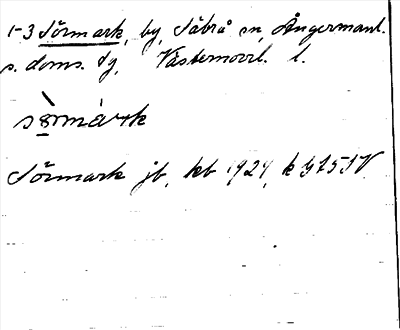 1-3 Sörmark, by, Säbrå sn, Ångermanl.
s. doms. tg, Västernorrl. l.
sörmàrk
Sörmark jb, kb 1924, k